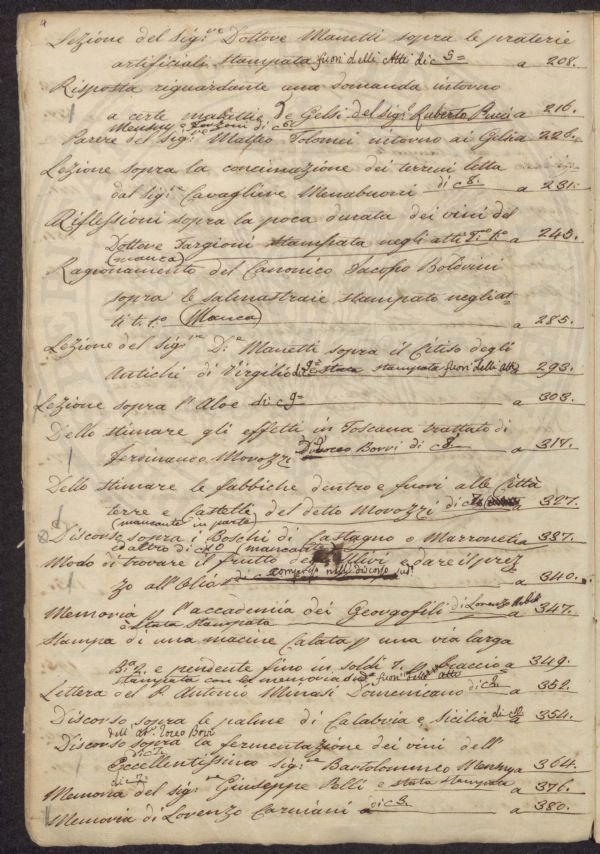 Lezione del Sig.re Dottore Manetti sopra le praterie
artificiali stampata fuori delli Atti di c 5= a 208.
Risposta riguardante una domanda intorno
a certe malattie de Gelsi del sig.r Ruberto Pucci a 216.
Parere del Sig.re Matteo Tolomei intorno ai Gelsi a 226.
Lezione sopra la concinazione dei terreni letta
dal Sig.re Cavagliere Menabuoni di c 8. a 231.
Riflessioni sopra la poca durata dei vini del
Dottore Targioni stampata negli atti T.o p.o a 245.
(manca)
Ragionamento del Canonico Jacopo Boldrini
sopra le salmastraie stampato negli at-
ti t. 1.o (Manca) a 285.
Lezione del Sig.re D.re Manetti sopra il Citiso degli
Antichi di Virgilio di c 9= stata stampata fuori delli atti 293.
Lezione sopra l'Aloe di c 9= a 303.
Dello stimare gli effetti in Toscana trattato di
Ferdinando Morozzi di c 8. a 317.
Dello stimare le fabbiche dentro e fuori alle Città
terre e Castella del detto Morozzi di c 327.
(mancante in parte)
Discorso sopra i Boschi di Castagno o Marroneti a 337.
ed altro di c 10 (mancante)
Modo di trovare il frutto degl'Ulivi e dare il prez
zo all'Olio a 340.
Memoria p l'accademia dei Georgofili di Lorenzo 347.
è stata stampata
Stampa di una macine Calata p una via larga
B.a 2. e pendente fino in soldi 7. p braccio a 349.
stampata con la memoria sud.a fuori delli atti
Lettera del P. Antonio Minasi Domenicano di c 2= a 352.
Discorso sopra le palme di Calabria e Sicilia di c a 354.
Discorso sopra la fermentazione dei vini dell'
Eccellentissimo Sig.re Bartolommeo Mesny a 364.
Memoria del Sig.re Giuseppe Pelli è stata stampata a 376.
Memoria di Lorenzo Carmiani di c 3. a 380.